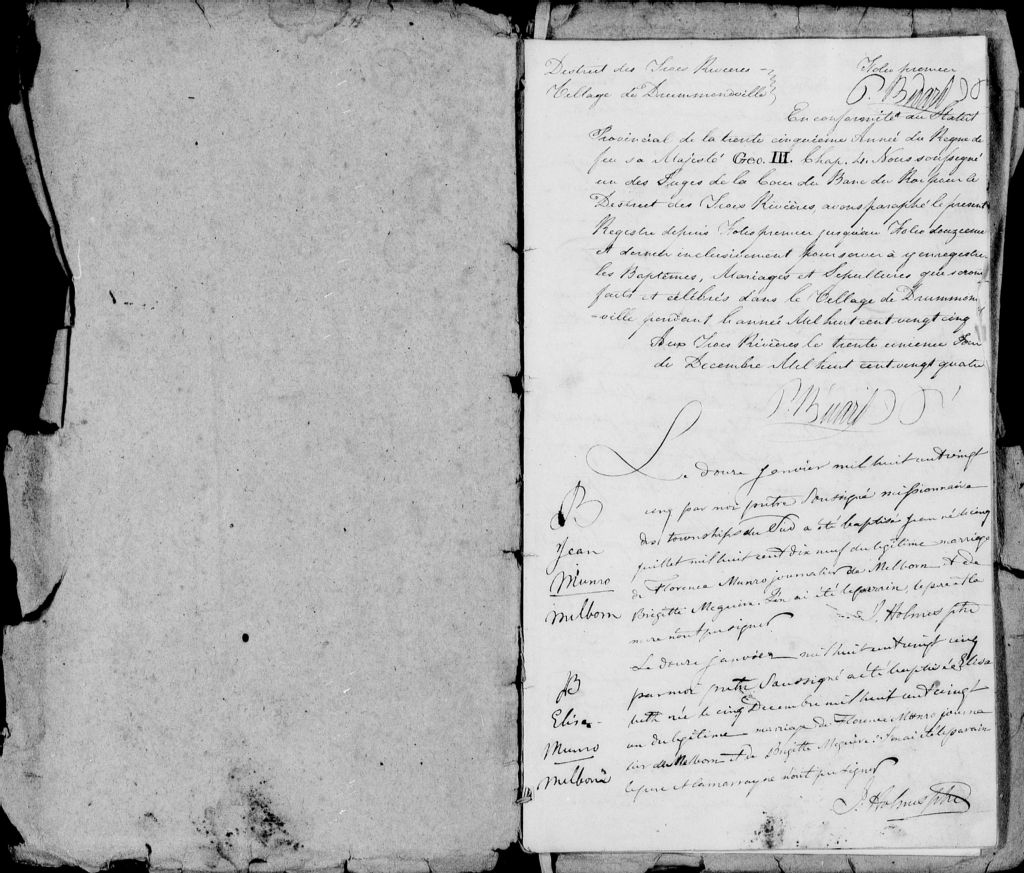 District des Trois Rivieres
Village de Drummondville
Folio premier
P. Bédard
En conformité du Statut
Provincial de la trente cinquième Année du Regne de
feu sa Majesté Geo. III. Chap. 4. Nous soussigné
un des Juges de la Cour du Banc du Roi pour le
District des Trois Rivières, avons paraphé le present
Registre depuis Folio premier jusqu'au Folio douzieme
et dernier inclusivement pour servir à y enregistrer
les Baptêmes, Mariages et Sepultures qui seront
faits et célébrés dans le Village de Drummond
-ville pendant l'année Mil huit cent vingt cinq
Aux Trois Rivières le trente unieme Jour
de Decembre Mil huit cent vingt quatre
P. Bédard
B
Jean
Munro
Melborn
Le douze janvier mil huit cent vingt
cinq par moi prêtre Soussigné missionnaire
des townships du Sud a été baptisé Jean né le cinq
juillet mil huit cent dix neuf du légitime marriage
de Florence Munro journalier de Melborn & de
Brigitte Meguire. J'en ai été le parain, le père & la
mere n'ont pu signer
J. Holmes ptre
B
Elisa
Munro
Melborn
Le douze janvier mil huit cent vingt cinq
par moi prêtre Soussigné a été baptisée Elisa
beth née le cinq Decembre mil huit cent vingt
un du légitime marriage de Florence Munro journa
lier de Melborn et de Brigitte Meguire. J'en ai été le parain
le pere et la marrayne n'ont pu signer
J. Holmes ptre